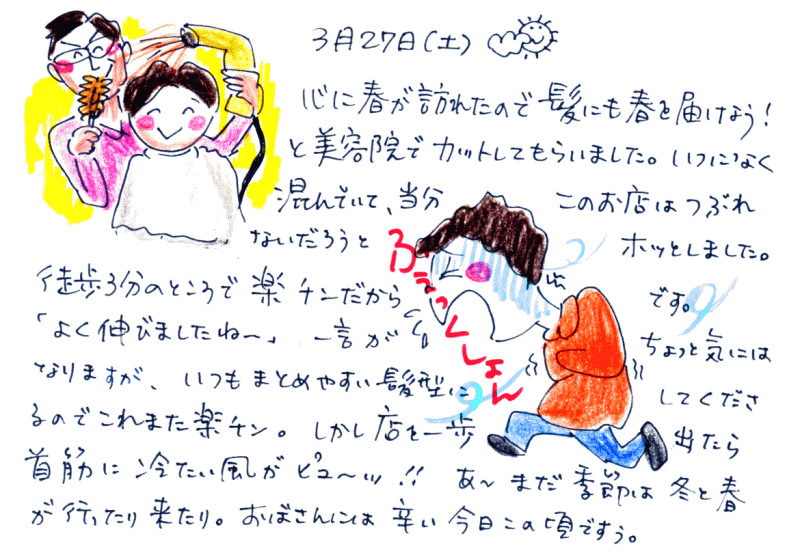 3月27日(土)
心に春が訪れたので髪にも春を届けよう!
と美容院でカットしてもらいました。いつになく
混んでいて、当分 このお店はつぶれ
ないだろうと ホッとしました。
徒歩3分のところで楽チンだから です。
「よく伸びましたね〜」 一言が ちょっと気には
なりますが、いつもまとめやすい髪型に してくださ
るのでこれまた楽チン。しかし店を一歩 出たら
首筋に冷たい風がピュ〜ッ!! あ〜まだ季節は冬と春
が行ったり来たり。おばさんには辛い今日この頃ですぅ。
ふぇっくしょん